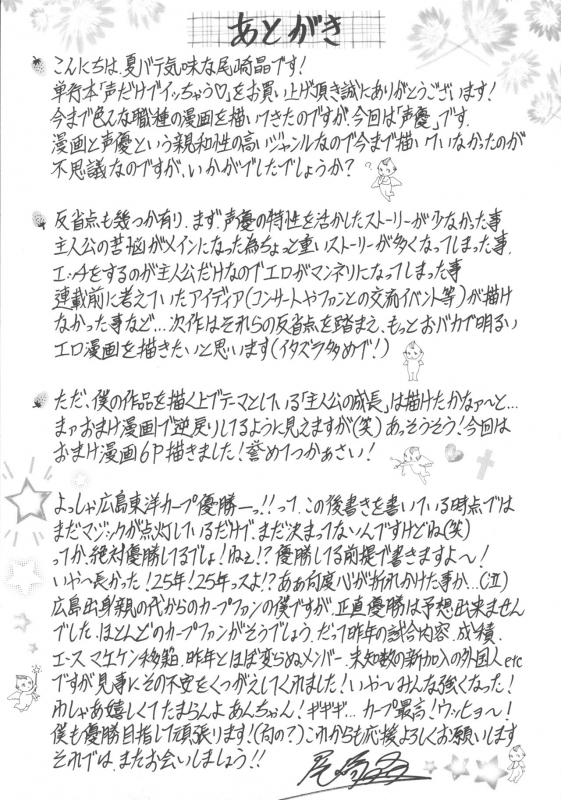 あとがき
こんにちは、夏バテ気味な尾崎晶です!
単行本「声だけでイッちゃう♡」をお買い上げ頂き誠にありがとうございます!
今まで色んな職種の漫画を描いてきたのですが、今回は「声優」です。
漫画と声優という親和性の高いジャンルなので今まで描いていなかったのが
不思議なのですが、いかがでしたでしょうか?
反省点も幾つか有り、まず、声優の特性を活かしたストーリーが少なかった事
主人公の苦悩がメインになった為ちょっと重いストーリーが多くなってしまった事、
エッチをするのが主人公だけなのでエロがマンネリになってしまった事
連載前に考えていたアイディア(コンサートやファンとの交流イベント等)が描け
なかった事など…次作はそれらの反省点を踏まえ、もっとおバカで明るい
エロ漫画を描きたいと思います(イタズラ多めで!)
ただ、僕の作品を描く上でテーマとしている「主人公の成長」は描けたかなァ〜と…
まァおまけ漫画で逆戻りしてるように見えますが(笑)あっそうそう!今回は
おまけ漫画6P描きました!誉めてつかぁさい!
よっしゃ広島東洋カープ優勝ーっ!!って、この後書きを書いている時点では
まだマジックが点灯しているだけで、まだ決まってないんですけどね(笑)
ってか、絶対優勝してるでしょ!ねェ!?優勝してる前提で書きますよ〜!
いや〜長かった!25年!25年っスよ!?あぁ何度心が折れかけた事か…(泣)
広島出身親の代からのカープファンの僕ですが、正直優勝は予想出来ません
でした、ほとんどのカープファンがそうでしょう、だって昨年の試合内容、成績、
エース マエケン移籍、昨年とほぼ変らぬメンバー、未知数の新加入の外国人etc
ですが見事にその不安をくつがえしてくれました!いや〜みんな強くなった!
わしゃあ嬉しくてたまらんよあんちゃん!ギギギ…カープ最高!ウッヒョ〜!
僕も優勝目指して頑張ります!(何の?)これからも応援よろしくお願いします
それでは、またお会いしましょう!!
尾崎晶